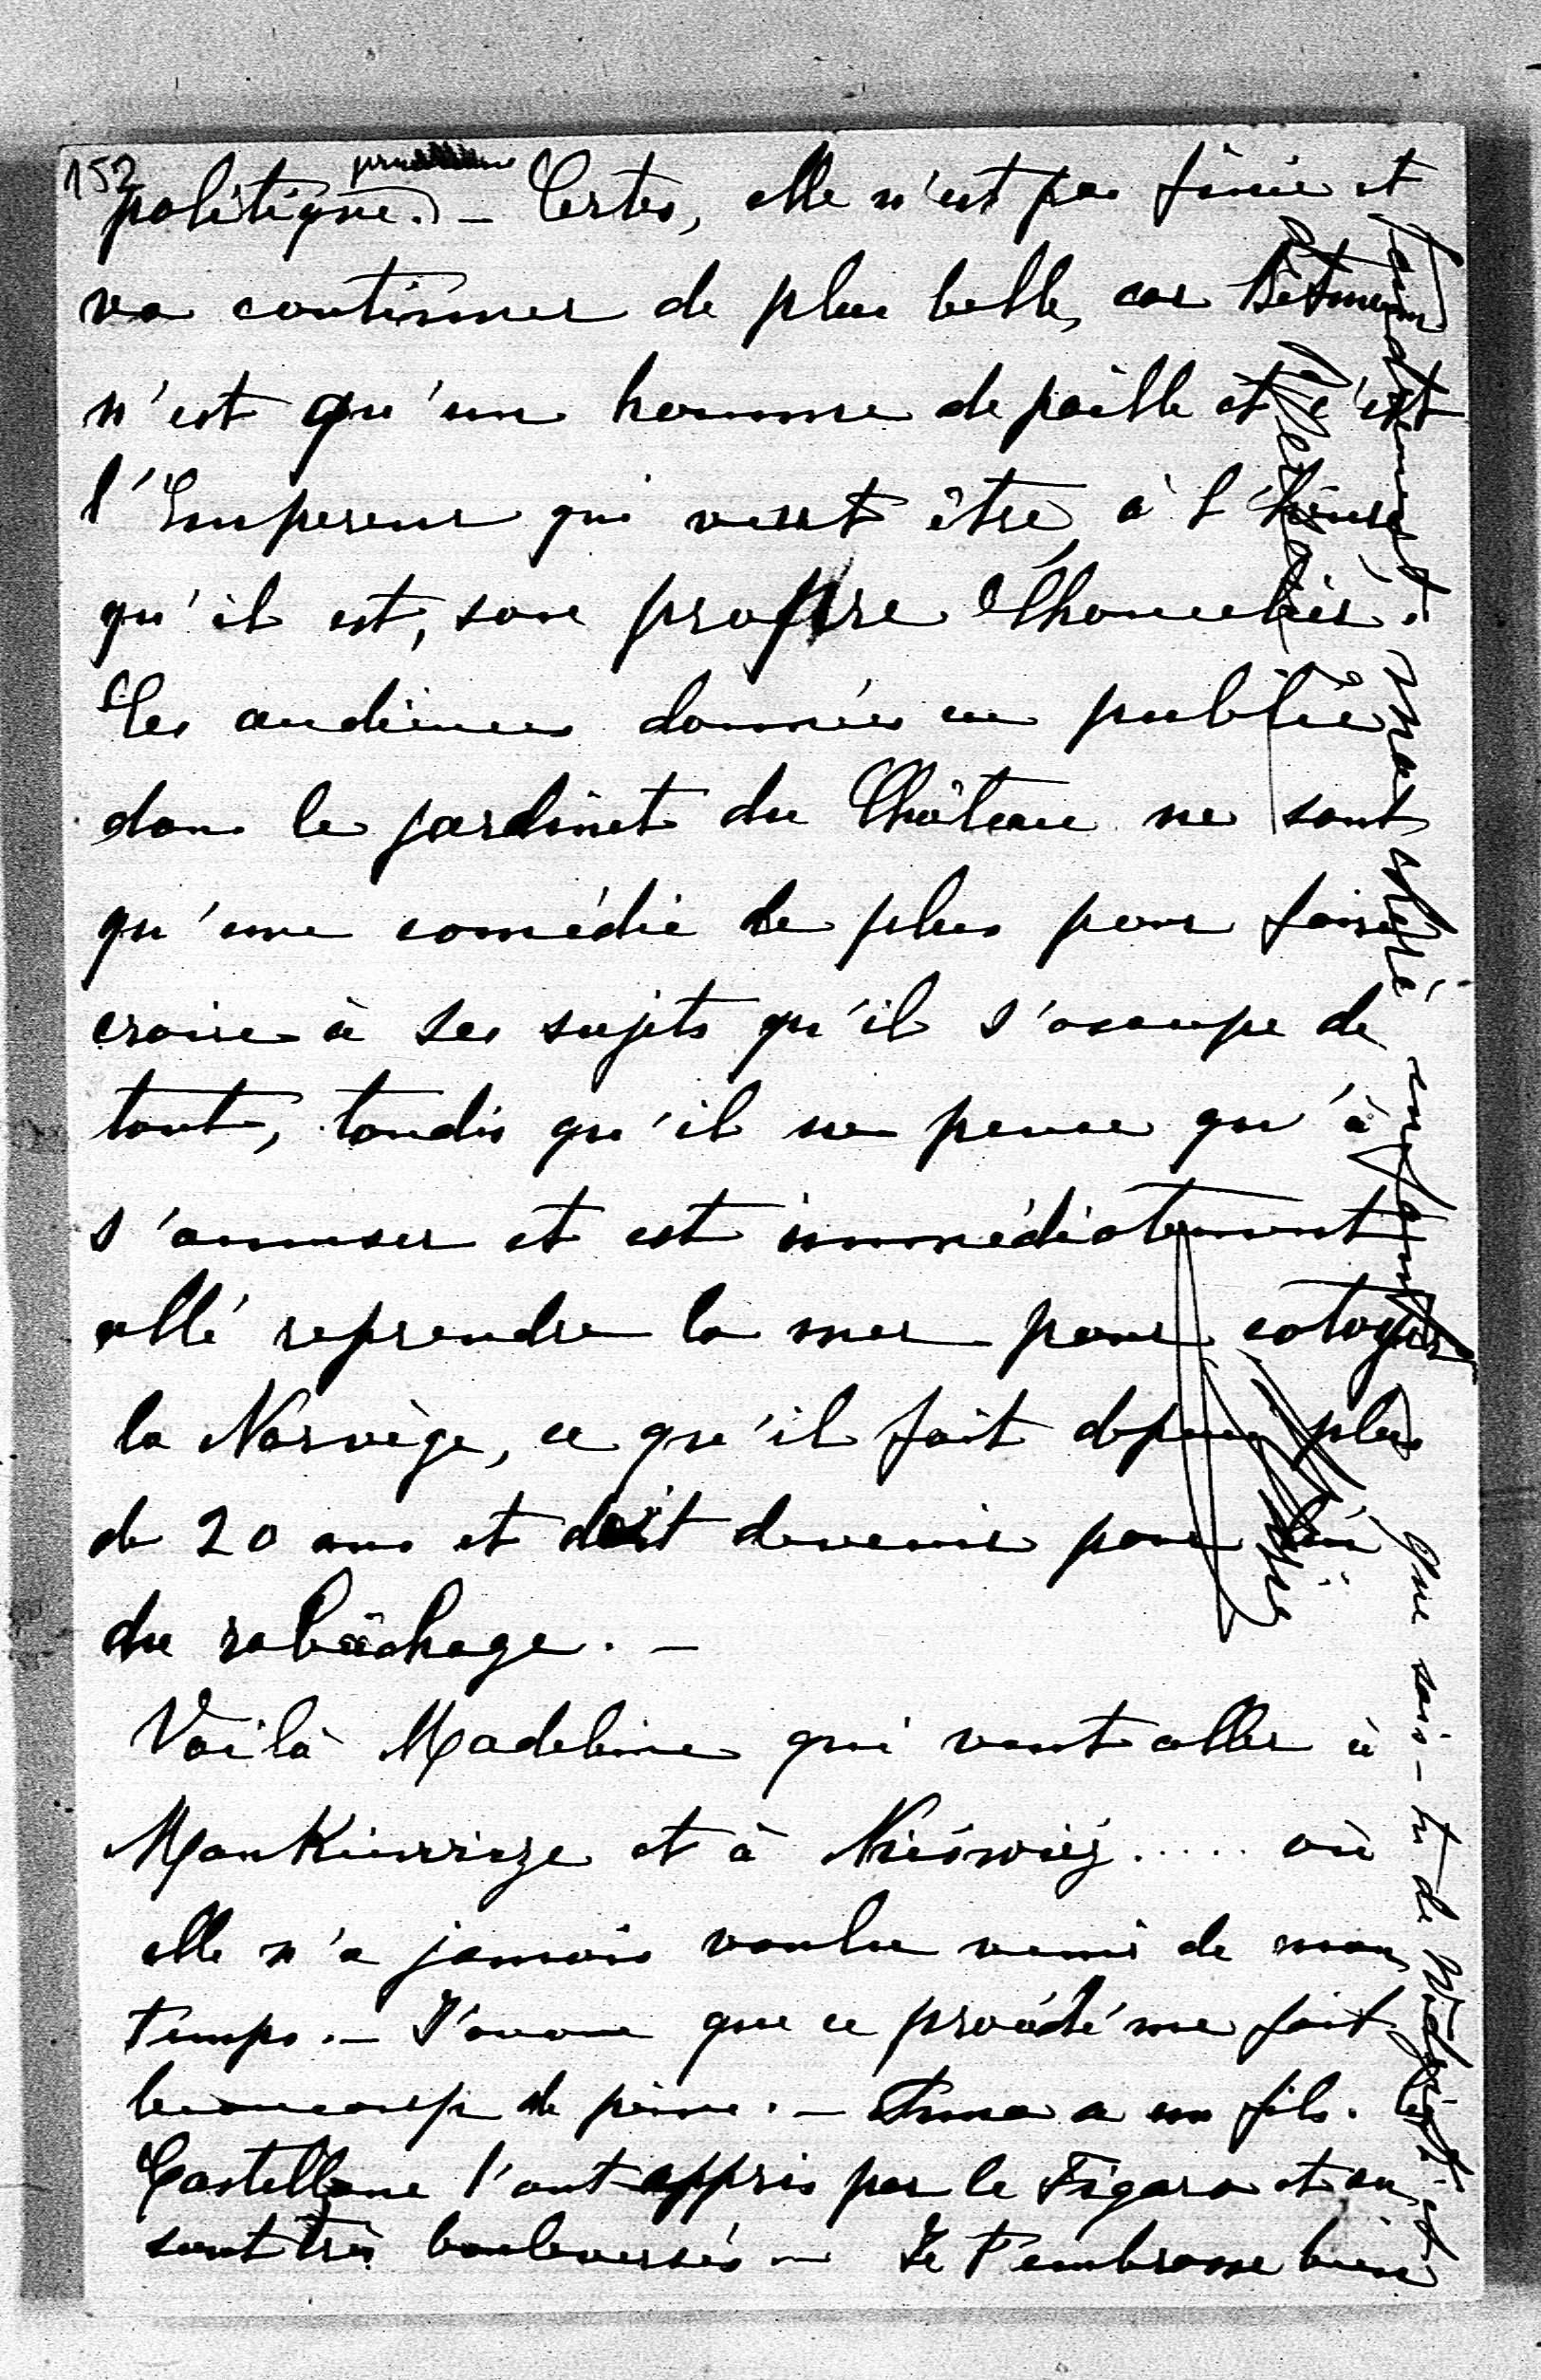 152
politique. – Certes, elle n'est pas finie et
va continuer de plus belle, car Betmann
n'est qu'un homme de paille et c'est
l'Empereur qui veut être, à l'heure
qu'il est, son propre Chancelier.
Les audiences données en public
dans le jardinet du Château ne sont
qu'une comédie de plus pour faire
croire à ses sujets qu'il s'occupe de
tout, tandis qu'il ne pense qu'à
s'amuser et est immédiatement
allé reprendre la mer pour cotoyer
la Norvège, ce qu'il fait depuis plus
de 20 ans et doit devenir pour lui
du rabâchage. –
Voilà Madeleine qui veut aller à
Mankiewicze et à Nieświéz ..... où
elle n'a jamais voulu venir de mon
temps. – J'avoue que ce procédé me fait
beaucoup de peine. – Anna a un fils.
Castellane l'ont appris par le Figaro et en
sont très bouleversés – Je t'embrasse bien
tendrement ma chère enfant
Que sais-tu de